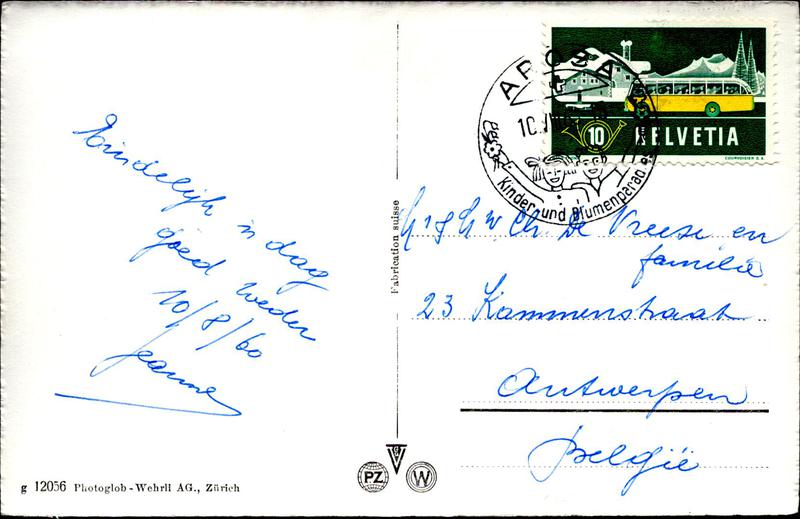 Eindelijk 'n dag
goed weder
10/8/60
Jeanne
g 12056 Photoglob-Wehrli AG., Zürich
Fabrication suisse
PZ
W
AROSA
10
Kinder und Blumenparad
10 HELVETIA
COURVOISIER S.A.
Ch De Vreese en
familie
23 Kammenstraat
Antwerpen
België